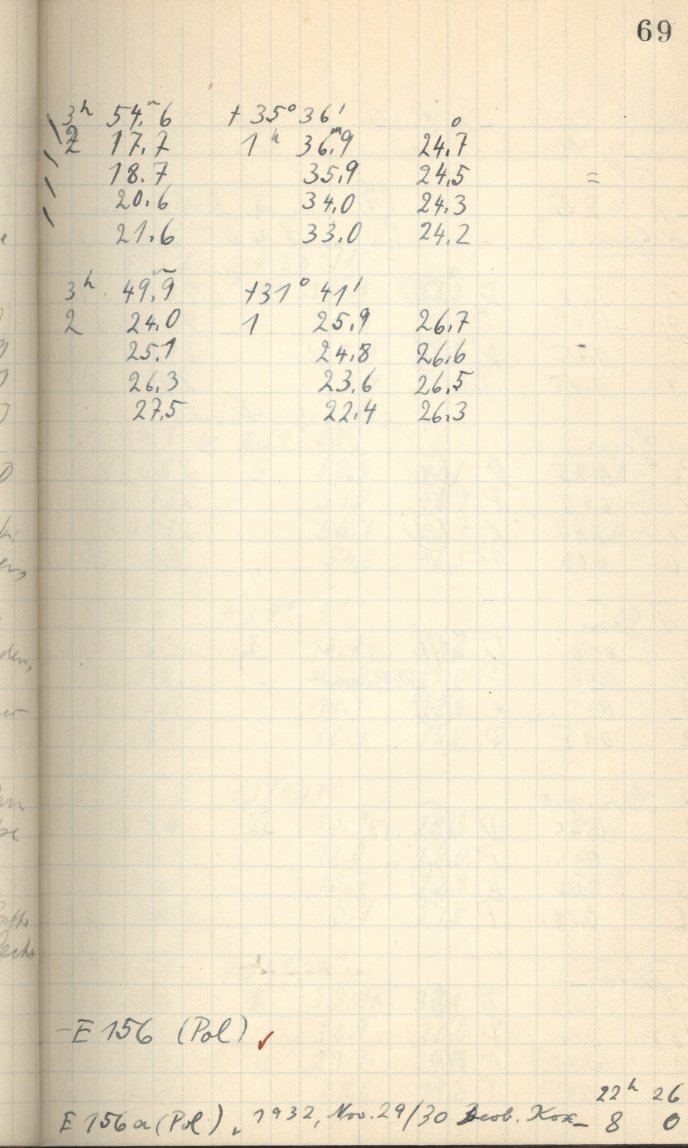 69
3ʰ 54,ᵐ6 +35° 36'
2 17.7 1ʰ 36,ᵐ9 24,°7
18.7 35,9 24,5 =
20.6 34,0 24,3
21.6 33,0 24,2
3ʰ 49,ᵐ9 +31° 41'
2 24,0 1 25,9 26,7 -
25,1 24,8 26,6
26,3 23,6 26,5
27,5 22,4 26,3
-E 156 (Pol) ✓
22ʰ 26
E 156a (Pol), 1932, Nov. 29/30 Beob. 8 0